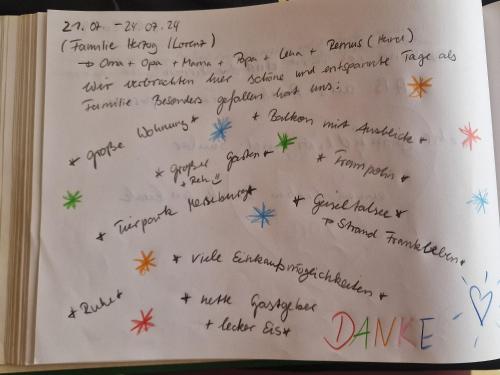 21.07. - 24.07.24
(Familie Herzog / Lorenz)
→ Oma + Opa + Mama + Papa + Lena + Remus (Hund)
Wir verbrachten hier schöne und entspannte Tage als
Familie. Besonders gefallen hat uns:
* große Wohnung *
* Balkon mit Ausblick *
* großer Garten *
+ Reh
* Trampolin *
* Tierpark Merseburg *
* Geiseltalsee *
→ Strand Frankleben *
* viele Einkaufsmöglichkeiten *
* Ruhe *
* nette Gastgeber
+ lecker Eis *
DANKE